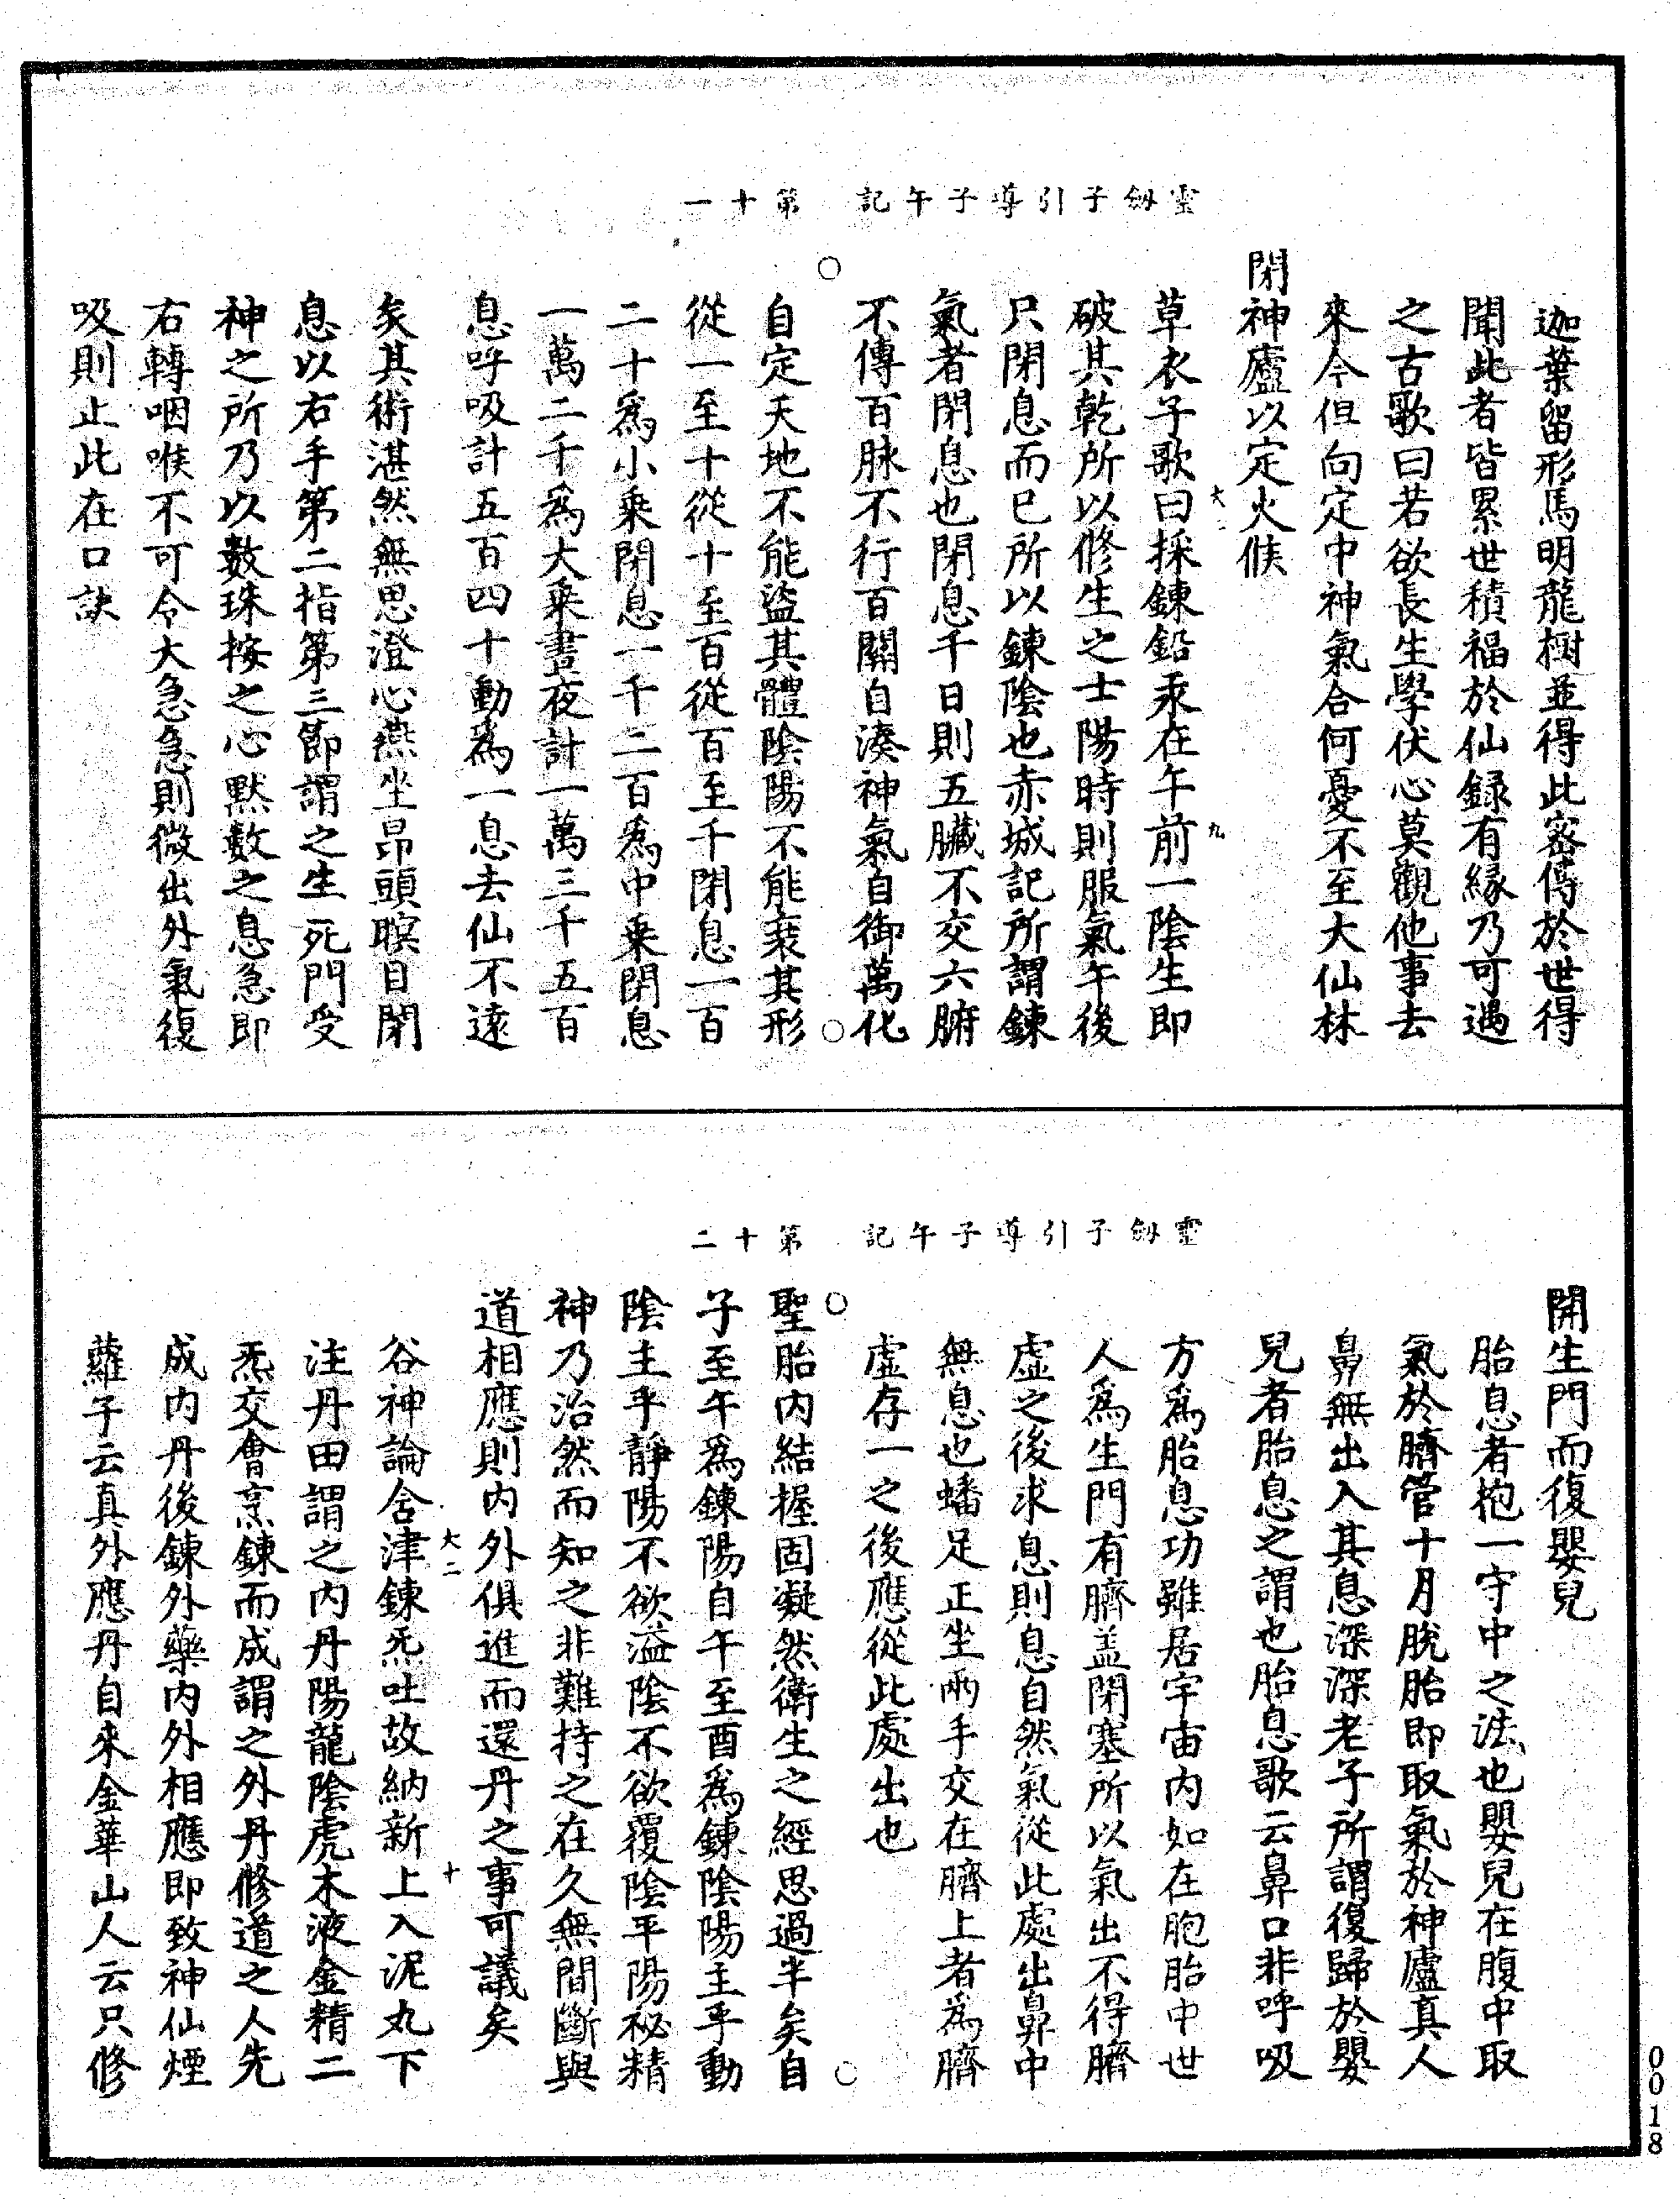 迦葉留形馬明龍樹並得此密傳於世得
聞此者皆累世積福於仙録有緣乃可遇
之古歌曰若欲長生學伏心莫觀他事去
來今但向定中神氣合何憂不至大仙林
閉神廬以定火候
草衣子歌曰採鍊鉛汞在午前一陰生即
破其乾所以修生之士陽時則服氣午後
只閉息而已所以鍊陰也赤城記所謂鍊
氣者閉息也閉息千日則五臟不交六腑
不傳百脉不行百關自湊神氣自御萬化
靈劔子引導子午記 第十一
自定天地不能盜其體陰陽不能衰其形
從一至十從十至百從百至千閉息一百
二十爲小乘閉息一千二百爲中乘閉息
一萬二千爲大乘晝夜計一萬三千五百
息呼吸計五百四十動爲一息去仙不遠
矣其術湛然無思澄心燕坐昂頭瞑目閉
息以右手第二指第三節謂之生死門受
神之所乃以數珠按之心默數之息急即
右轉咽喉不可令大急急則微出外氣復
吸則止此在口訣
大二
九
開生門而復嬰兒
胎息者抱一守中之法也嬰兒在腹中取
氣於臍管十月脫胎即取氣於神廬真人
鼻無出入其息深深老子所謂復歸於嬰
兒者胎息之謂也胎息歌云鼻口非呼吸
方爲胎息功雖居宇宙内如在胞胎中世
人爲生門有臍盖閉塞所以氣出不得臍
虛之後求息則息自然氣從此處出鼻中
無息也蟠足正坐兩手交在臍上者爲臍
虛存一之後應從此處出也
靈劔子引導子午記 第十二
聖胎内結握固凝然衛生之經思過半矣自
子至午爲鍊陽自午至酉爲鍊陰陽主乎動
陰主乎靜陽不欲溢陰不欲覆陰平陽祕精
神乃治然而知之非難持之在久無間斷與
道相應則内外俱進而還丹之事可議矣
谷神論舍津鍊炁吐故納新上入泥丸下
注丹田謂之内丹陽龍陰虎木液金精二
炁交會烹鍊而成謂之外丹修道之人先
成内丹後鍊外藥内外相應即致神仙煙
蘿子云真外應丹自來金華山人云只修
大二
十
0018